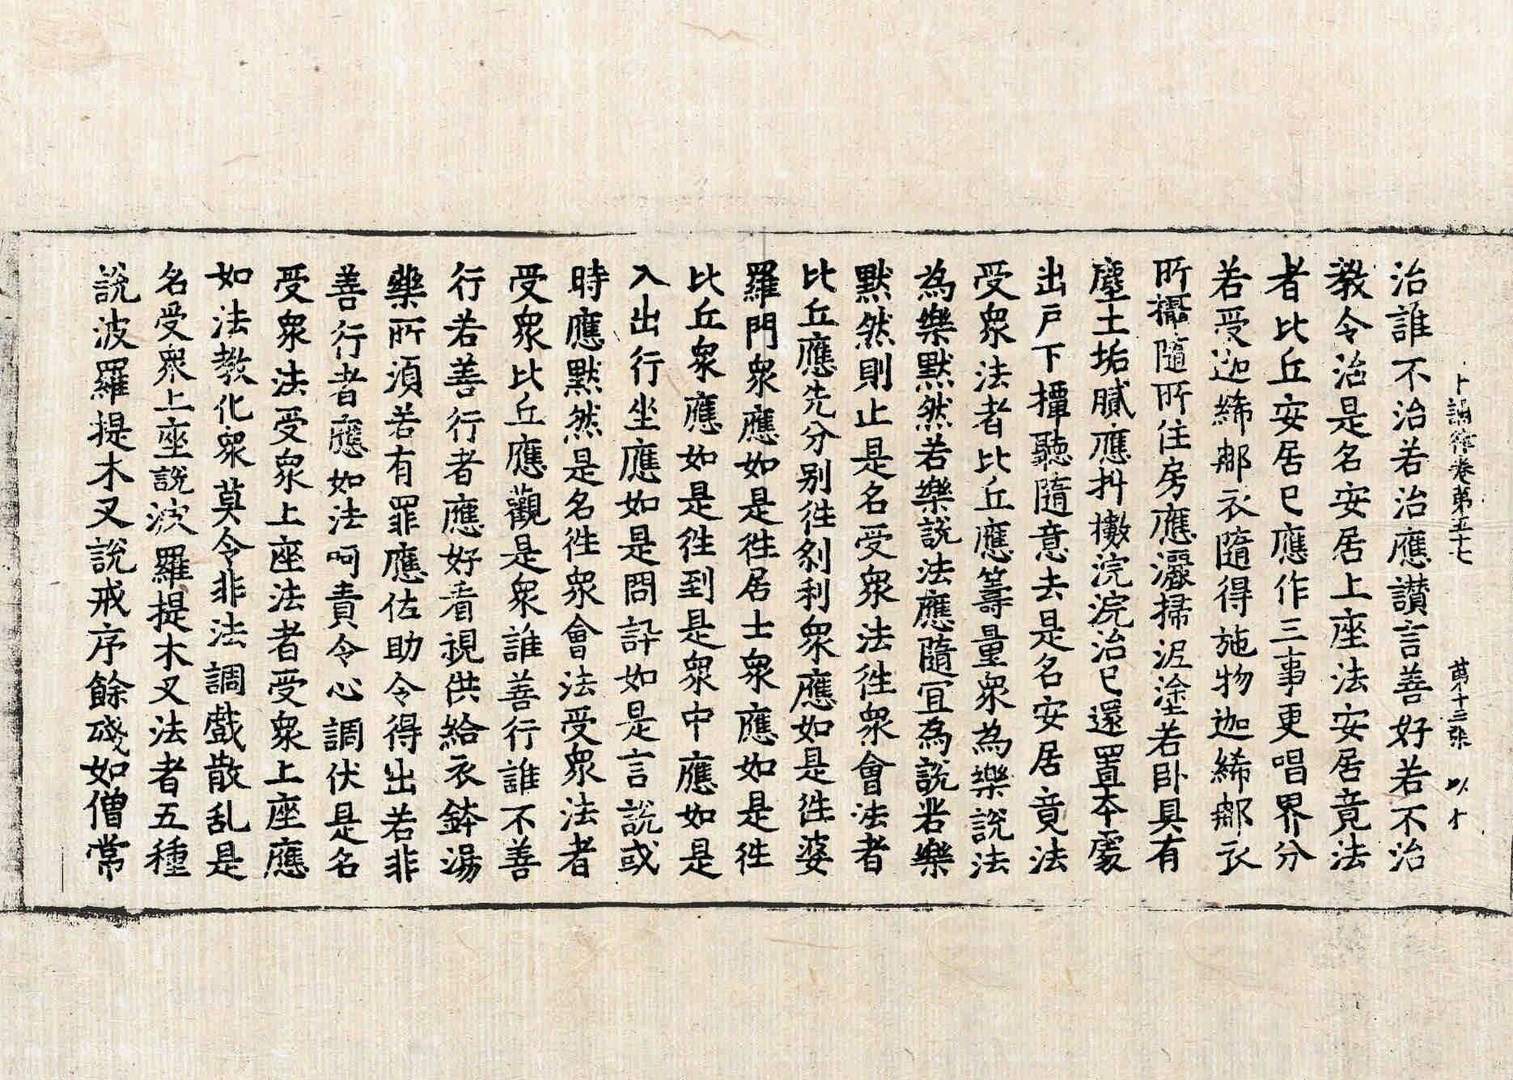 十誦律卷第五十七 第十三張 以十
治誰不治若治應讃言善好若不治
教令治是名安居上座法安居竟法
者比丘安居已應作三事更唱界分
若受迦絺那衣隨得施物迦絺那衣
所攝隨所住房應灑掃泥塗若卧具有
塵土垢膩應抖擻浣浣治已還置本處
出戶下撢聽隨意去是名安居竟法
受衆法者比丘應籌量衆為樂說法
為樂默然若樂說法應隨宜為說若樂
默然則止是名受衆法徃衆會法者
比丘應先分别徃刹利衆應如是徃婆
羅門衆應如是徃居士衆應如是徃
比丘衆應如是徃到是衆中應如是
入出行坐應如是問訊如是言說或
時應默然是名徃衆會法受衆法者
受衆比丘應觀是衆誰善行誰不善
行若善行者應好看視供給衣鉢湯
藥所湏若有罪應佐助令得出若非
善行者應如法呵責令心調伏是名
受衆法受衆上座法者受衆上座應
如法教化衆莫令非法調戲散乱是
名受衆上座說波羅提木叉法者五種
說波羅提木叉說戒序餘殘如僧常